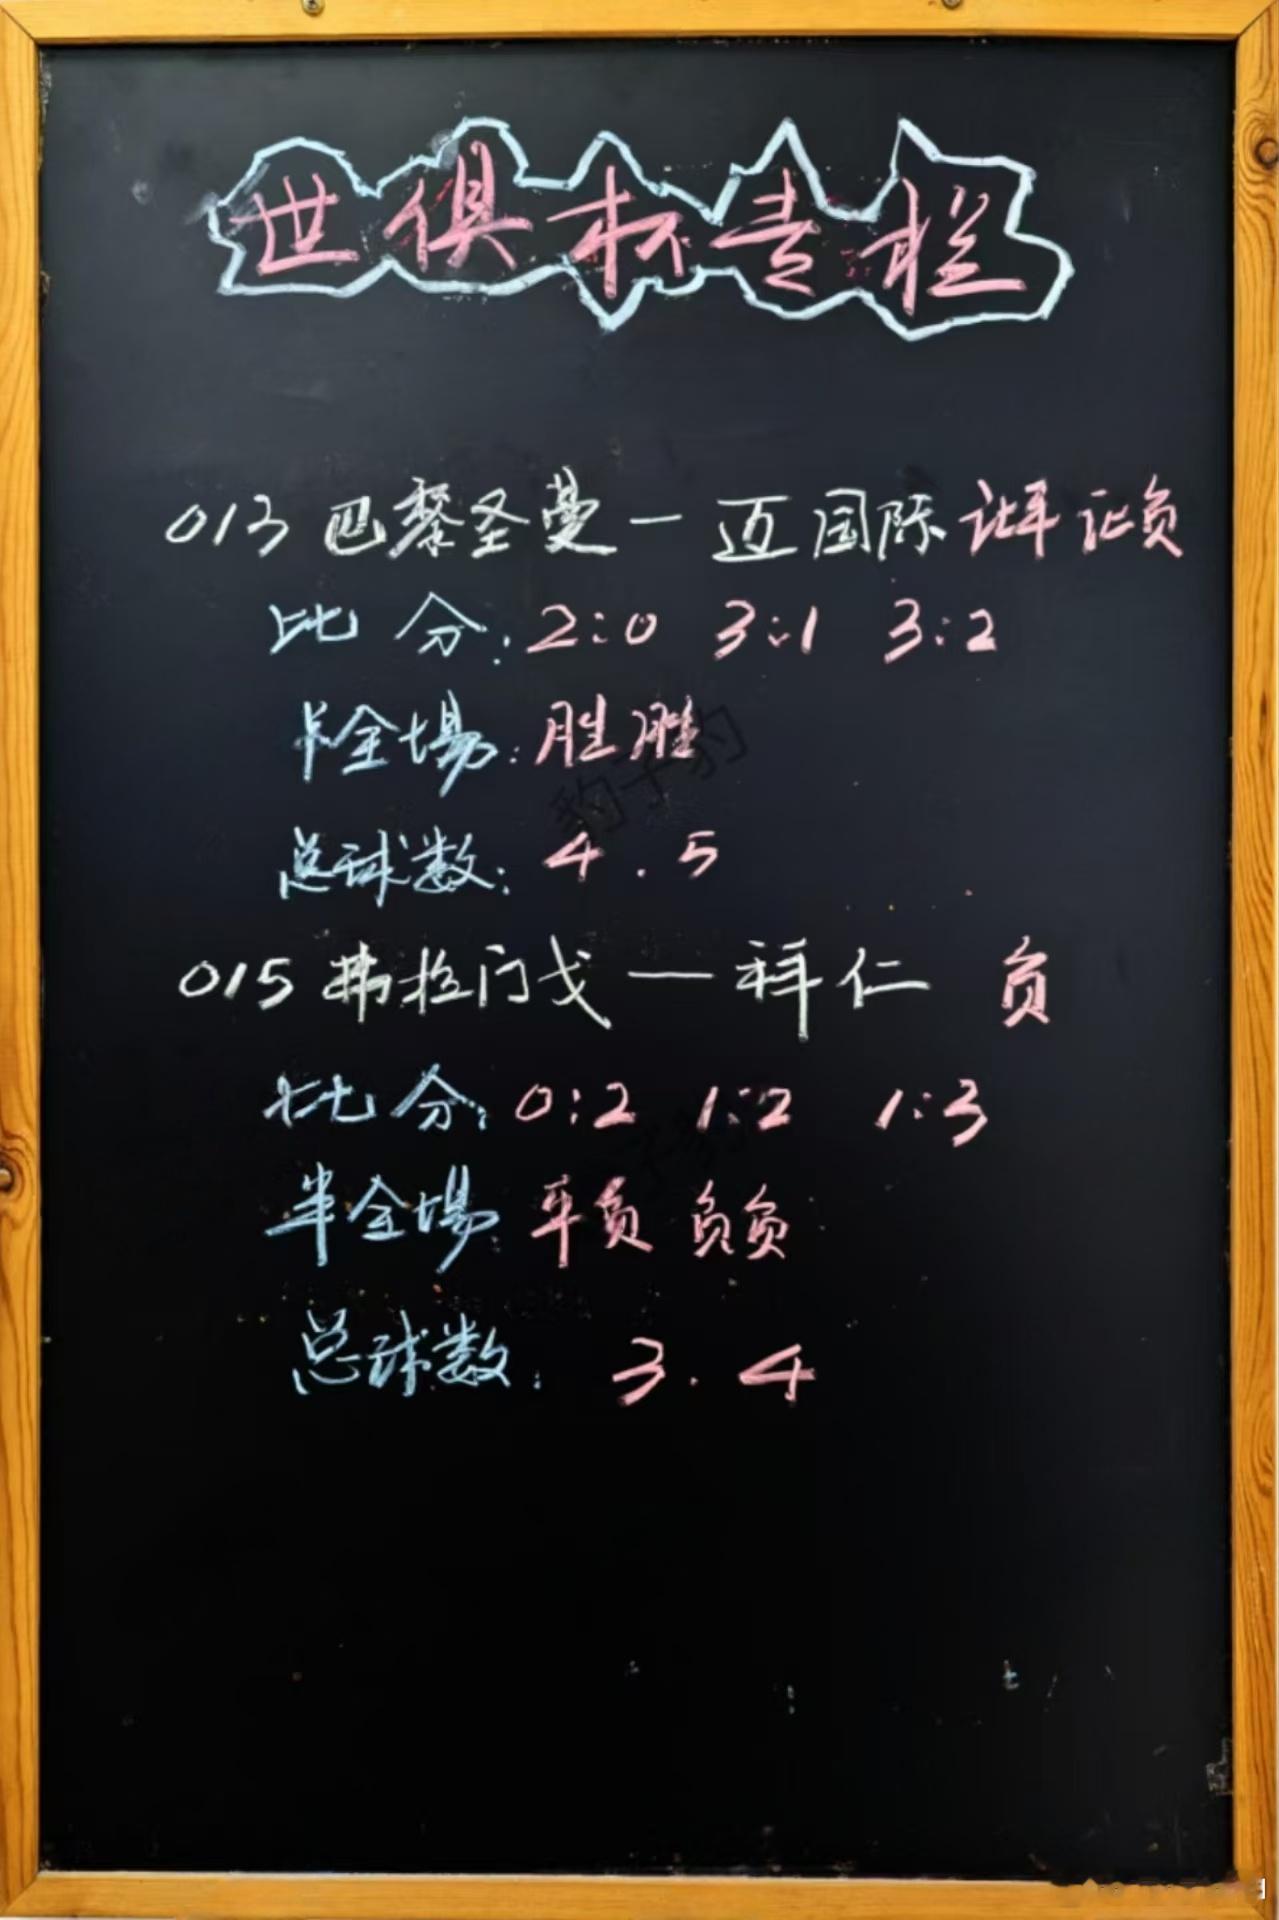 世俱杯专栏
013 巴黎圣曼一迈国际 让平 让负
比分:2:0 3:1 3:2
半全場:胜胜
总球数:4.5
015 弗拉门戈一拜仁 负
比分:0:2 1:2 1:3
半全場:平负 负负
总球数:3.4
豹子豹